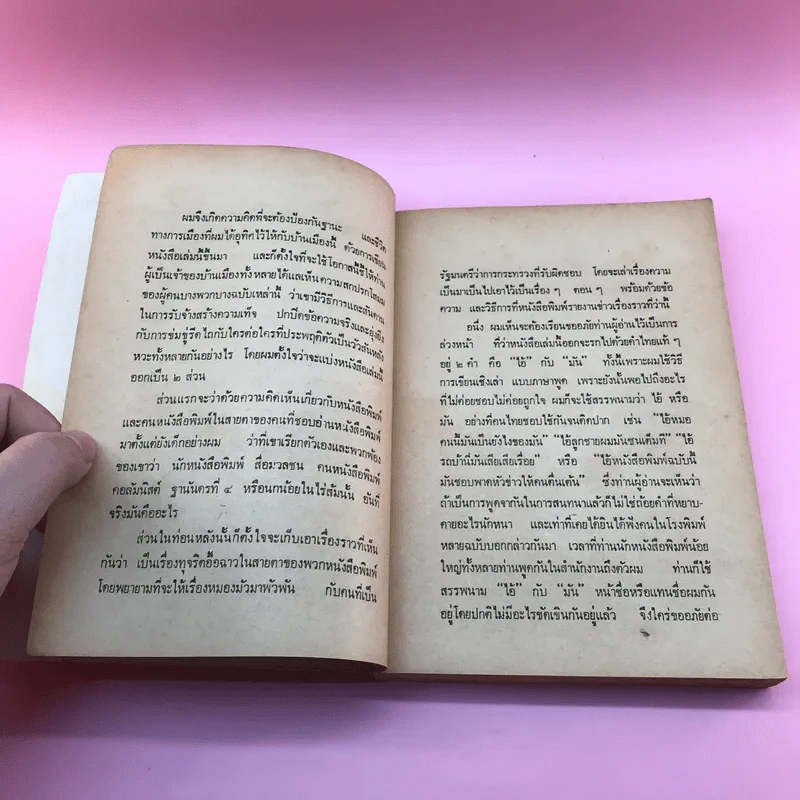 ผมจึงเกิดความคิดที่จะต้องป้องกันฐานะ และชีวิต
ทางการเมืองที่ผมได้อุทิศไว้ให้กับบ้านเมืองนี้ ด้วยการเขียน
หนังสือเล่มนี้ขึ้นมา และก็ตั้งใจที่จะใช้โอกาสนี้ชี้ให้ท่าน
ผู้เป็นเจ้าของบ้านเมืองทั้งหลายได้แลเห็นความสกปรกโสมม
ของผู้คนบางพวกบางฉบับเหล่านี้ ว่าเขามีวิธีการและสันดาน
ในการรับจ้างสร้างความเท็จ ปกปิดข้อความจริงและยุ่งยิง
กับการข่มขู่รีดไถกับใครต่อใครที่ประพฤติตัวเป็นวัวสันหลัง
หวะทั้งหลายกันอย่างไร โดยผมตั้งใจว่าจะแบ่งหนังสือเล่มนี้
ออกเป็น ๒ ส่วน
ส่วนแรกจะว่าด้วยความคิดเห็นเกี่ยวกับหนังสือพิมพ์
และคนหนังสือพิมพ์ในสายตาของคนที่ชอบอ่านหนังสือพิมพ์
มาตั้งแต่ยังเด็กอย่างผม ว่าที่เขาเรียกตัวเองและพวกพ้อง
ของเขาว่า นักหนังสือพิมพ์ สื่อมวลชน คนหนังสือพิมพ์
คอลัมนิสต์ ฐานันดรที่ ๔ หรือนกน้อยในไร่ส้มนั้น อันที่
จริงมันคืออะไร
ส่วนในท่อนหลังนั้นก็ตั้งใจจะเก็บเอาเรื่องราวที่เห็น
กันว่า เป็นเรื่องทุจริตอื้อฉาวในสายตาของพวกหนังสือพิมพ์
โดยพยายามที่จะให้เรื่องหมองมัวมาพัวพัน กับคนที่เป็น
รัฐมนตรีว่าการกระทรวงที่รับผิดชอบ โดยจะเล่าเรื่องความ
เป็นมาเป็นไปเอาไว้เป็นเรื่อง ๆ ตอน ๆ พร้อมด้วยข้อ
ความ และวิธีการที่หนังสือพิมพ์รายงานข่าวเรื่องราวที่ว่านี้
อนึ่ง ผมเห็นจะต้องเรียนขออภัยท่านผู้อ่านไว้เป็นการ
ล่วงหน้า ที่ว่าหนังสือเล่มนี้ออกจะรกไปด้วยคำไทยแท้ ๆ
อยู่ ๒ คำ คือ “ไอ้” กับ “มัน” ทั้งนี้เพราะผมใช้วิธี
การเขียนเชิงเล่า แบบภาษาพูด เพราะยังนั้นพอไปถึงอะไร
ที่ไม่ค่อยชอบไม่ค่อยถูกใจ ผมก็จะใช้สรรพนามว่า ไอ้ หรือ
มัน อย่างที่คนไทยชอบใช้กันจนติดปาก เช่น “ไอ้หมอ
คนนี้มันเป็นยังไงของมัน” “ไอ้ลูกชายผมมันซนเต็มที” “ไอ้
รถบ้านี่มันเสียเสียเรื่อย” หรือ “ไอ้หนังสือพิมพ์ฉบับนี้
มันชอบพาดหัวข่าวให้คนตื่นเต้น” ซึ่งท่านผู้อ่านจะเห็นว่า
ถ้าเป็นการพูดจากันในการสนทนาแล้วก็ไม่ใช่ถ้อยคำที่หยาบ-
คายอะไรนักหนา และเท่าที่เคยได้ยินได้ฟังคนในโรงพิมพ์
หลายฉบับบอกกล่าวกันมา เวลาที่ท่านนักหนังสือพิมพ์น้อย
ใหญ่ทั้งหลายท่านพูดกันในสำนักงานถึงตัวผม ท่านก็ใช้
สรรพนาม “ไอ้” กับ “มัน” หน้าชื่อหรือแทนชื่อผมกัน
อยู่โดยปกติไม่มีอะไรขัดเขินกันอยู่แล้ว จึงใคร่ขออภัยต่อ